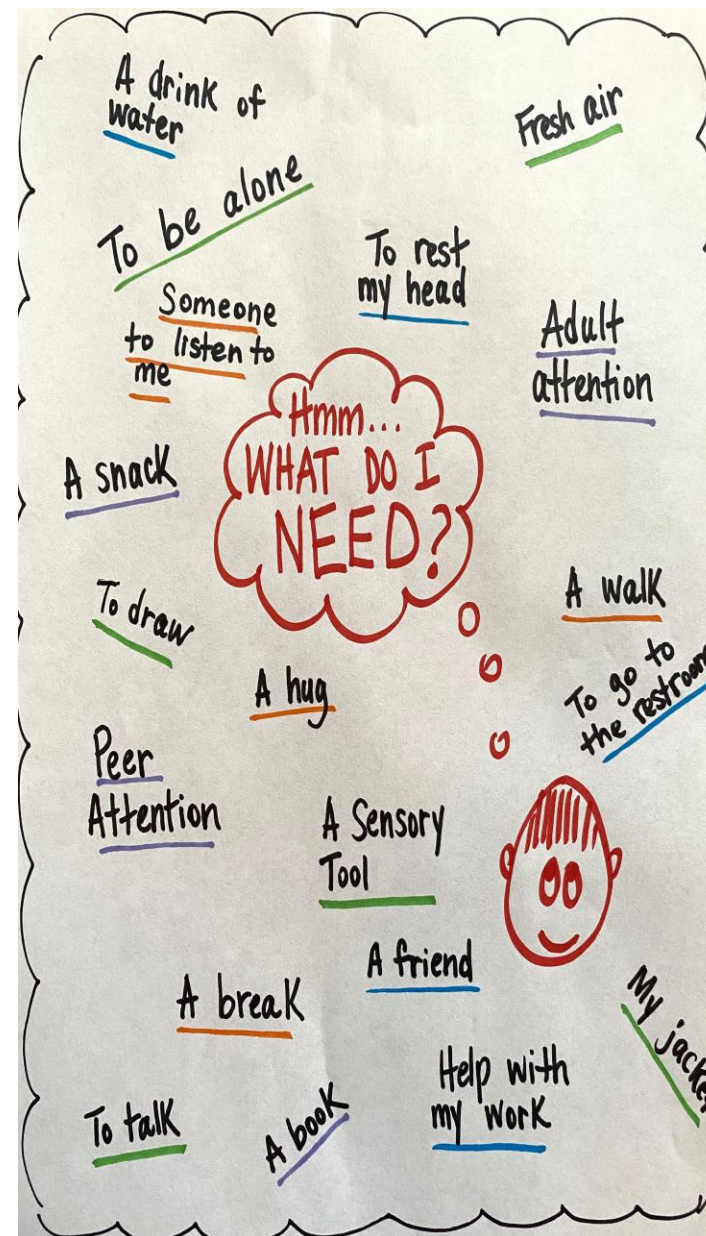 A drink of
water
Fresh air
To be alone
To rest
my head
Someone
to listen to
me
Adult
attention
Hmm...
WHAT DO I
NEED?
A snack
To draw
A walk
To go to
the restroom
A hug
Peer
Attention
A Sensory
Tool
A friend
A break
My jacket
Help with
my work
To talk
A book